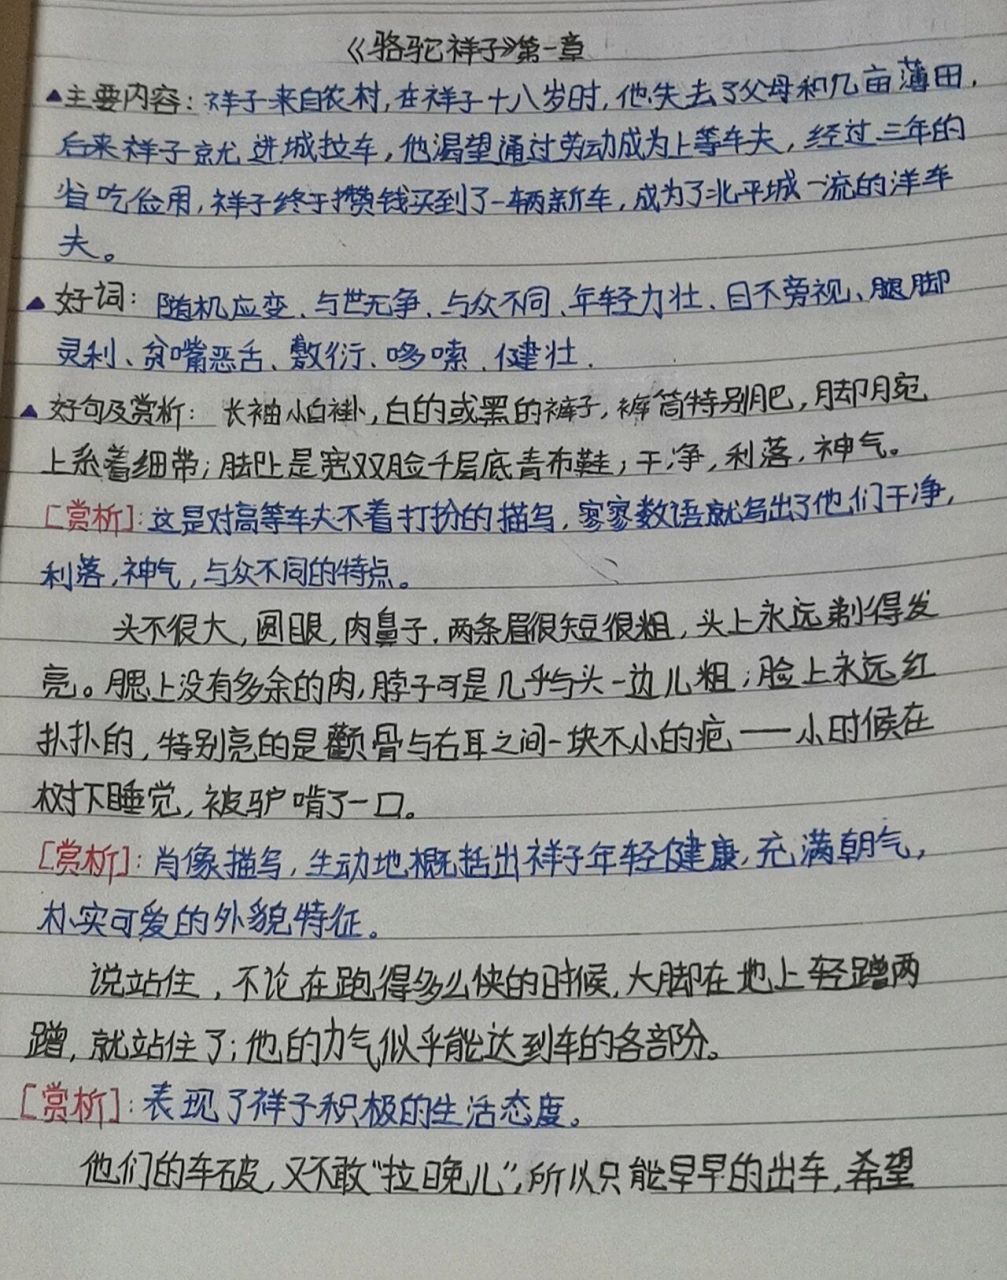 《骆驼祥子》第一章
▲主要内容：祥子来自农村，在祥子十八岁时，他失去了父母和几亩薄田，
后来祥子就进城拉车，他渴望通过劳动成为上等车夫，经过三年的
省吃俭用，祥子终于攒钱买到了一辆新车，成为了北平城一流的洋车
夫。
▲好词：随机应变、与世无争、与众不同、年轻力壮、目不旁视、腿脚
灵利、贫嘴恶舌、敷衍、哆嗦、健壮.
▲好句及赏析：长袖小白褂，白的或黑的裤子，裤筒特别肥，脚腕
上系着细带；脚上是宽双脸千层底青布鞋；干净，利落，神气。
[赏析]：这是对高等车夫不着打扮的描写，寥寥数语就写出了他们干净，
利落，神气，与众不同的特点。
头不很大，圆眼，肉鼻子，两条眉很短很粗，头上永远剃得发
亮。腮上没有多余的肉，脖子可是几乎与头一边儿粗；脸上永远红
扑扑的，特别亮的是颧骨与右耳之间一块不小的疤——小时候在
树下睡觉，被驴啃了一口。
[赏析]：肖像描写，生动地概括出祥子年轻健康，充满朝气，
朴实可爱的外貌特征。
说站住，不论在跑得多么快的时候，大脚在地上轻蹭两
蹭，就站住了；他的力气似乎能达到车的各部分。
[赏析]：表现了祥子积极的生活态度。
他们的车破，又不敢“拉晚儿”，所以只能早早的出车，希望